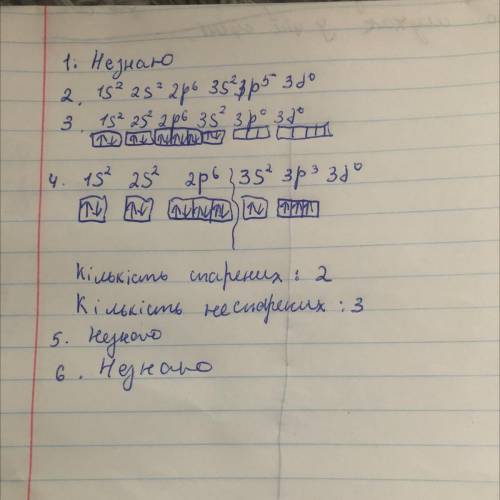 1. Незнаю
2. 1s² 2s² 2p⁶ 3s² 3p⁵ 3d⁰
3. 1s² 2s² 2p⁶ 3s² 3p⁰ 3d⁰
↑↓ ↑↓ ↑↓ ↑↓ ↑↓ ↑↓
4. 1s² 2s² 2p⁶ 3s² 3p³ 3d⁰
↑↓ ↑↓ ↑↓ ↑↓ ↑↓ ↑↓ ↑ ↑ ↑
Кількість спарених : 2
Кількість неспарених : 3
5. Незнаю
6. Незнаю